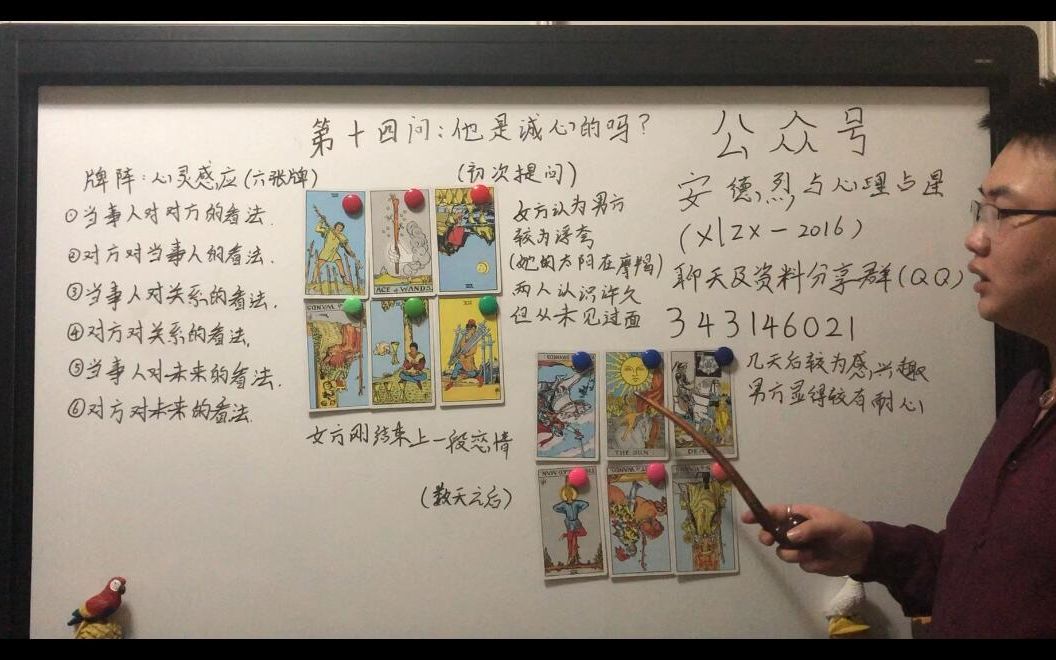 第十四问:他是诚心的吗?
公众号
牌阵:心灵感应(六张牌)
(初次提问)
①当事人对对方的看法.
②对方对当事人的看法.
③当事人对关系的看法.
④对方对关系的看法.
⑤当事人对未来的看法.
⑥对方对未来的看法.
女方认为男方
较为浮夸
(她的太阳在摩羯)
两人认识许久
但从未见过面
安德烈与心理占星
(xlzx-2016)
聊天及资料分享群(QQ)
343146021
ACE of WANDS
几天后较为感兴趣
男方显得较有耐心
女方刚结束上一段恋情
(数天之后)
THE SUN